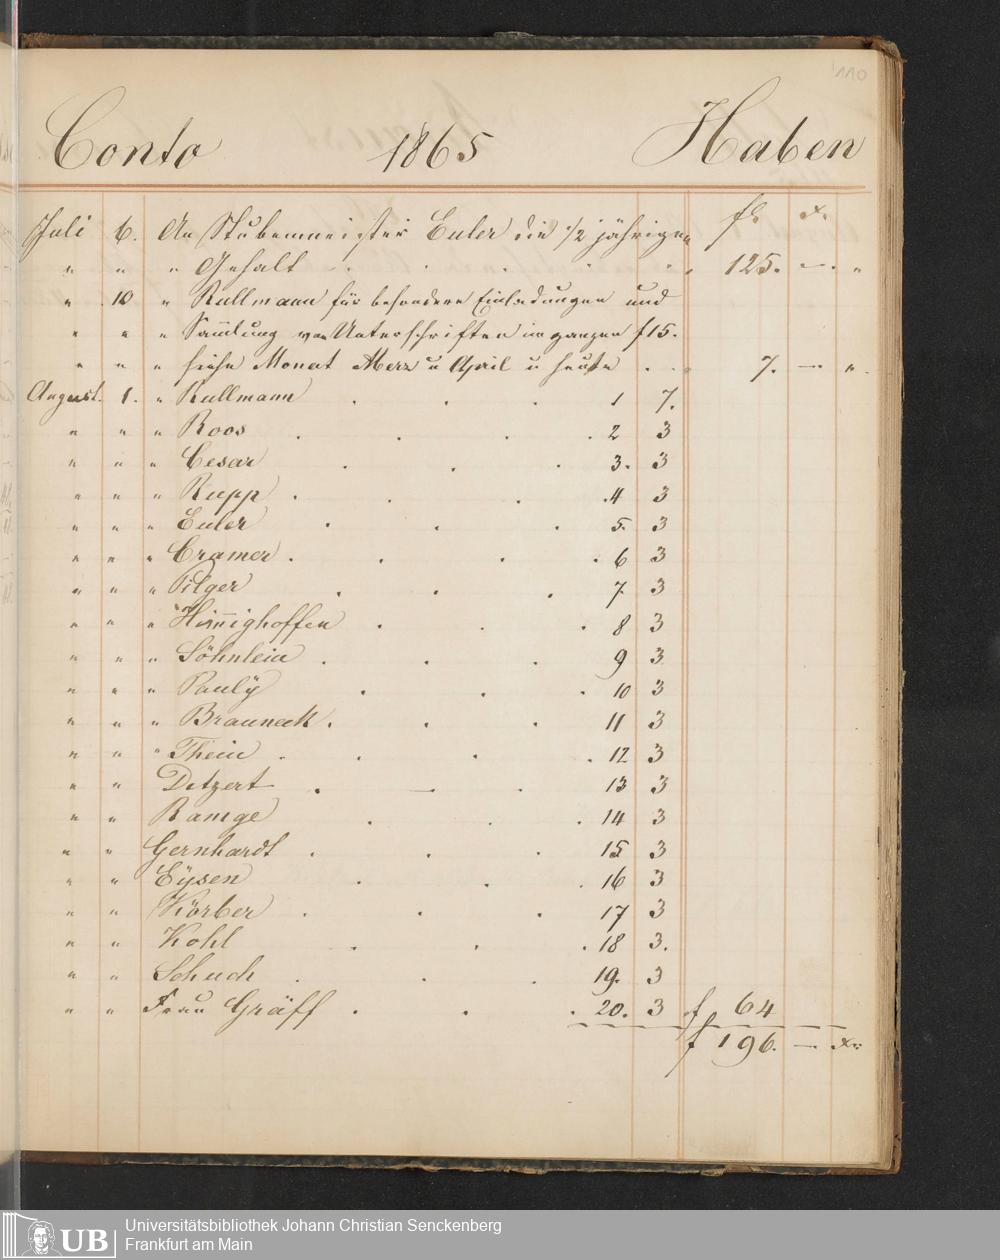 110
Conto 1865 Haben
Juli 6. An Stubenmeister Euler die 1/2 jährigen fl. x.
" " " Gehalt - . . . . . . 125. — . "
" 10 " Kullmann für besondere Einladungen und
" " " Sammlung von Unterschriften im ganzen f 15.
" " " Monat Merz u April u heute . . . 7. — " .
August. 1. " Kullmann . . . 1 7.
" " " Roos . . . . 2 3
" " " Cesar . . . 3. 3
" " " Rupp . . . . 4 3
" " " Euler . . . 5. 3
" " " Cramer . . . . . 6 3
" " " Pilger . . . 7. 3
" " " Hönighoffen . . . 8 3
" " " Söhnlein . . . 9 3
" " " Paulÿ . . . 10 3
" " " Brauneck . . . 11 3
" " " Thein . . . . . 12 3
" " Ditzert . — . 13 3
" " Ramge . . . 14 3
" " Gernhardt . . . 15 3
" " Eÿsen . . . 16 3
" " Körber . . . 17 3
" " Kohl . . . 18 3.
" " Schuch . . . 19. 3
" " Frau Gräff . . . 20. 3 f 64
f 196. — x.
UB
Universitätsbibliothek Johann Christian Senckenberg
Frankfurt am Main